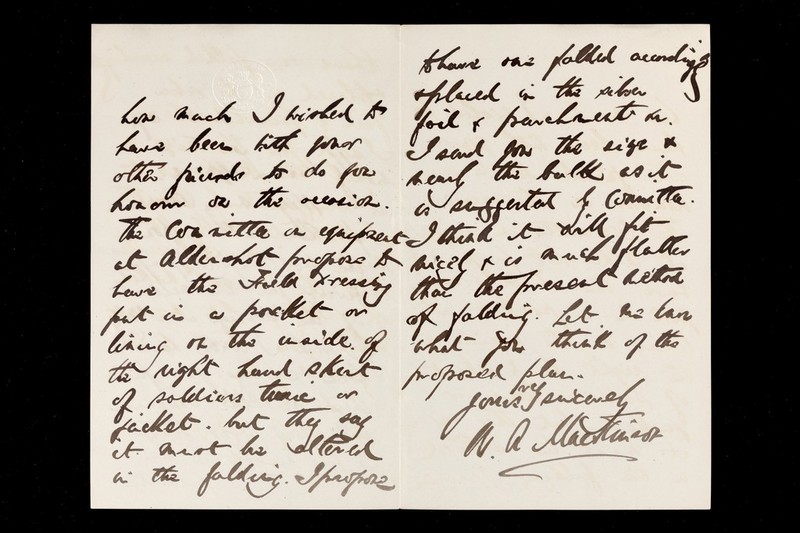 how much I wished to
have been with your
other friends to do you
honour on the occasion.
The Committee on equipment
at Aldershot propose to
have the Field Dressing
put in a pocket or
lining on the inside of
the right hand skirt
of soldiers tunic or
jacket. but they say
it must be altered
in the folding. I propose
to have one folded according
& placed in the silver
foil & parchment
I send you the size &
nearly the bulk as it
is suggested by Committee.
I think it will fit
nicely & is much flatter
than the present method
of folding. Let me know
what you think of the
proposed plan.
yours very sincerely
W. A. Mackinnon